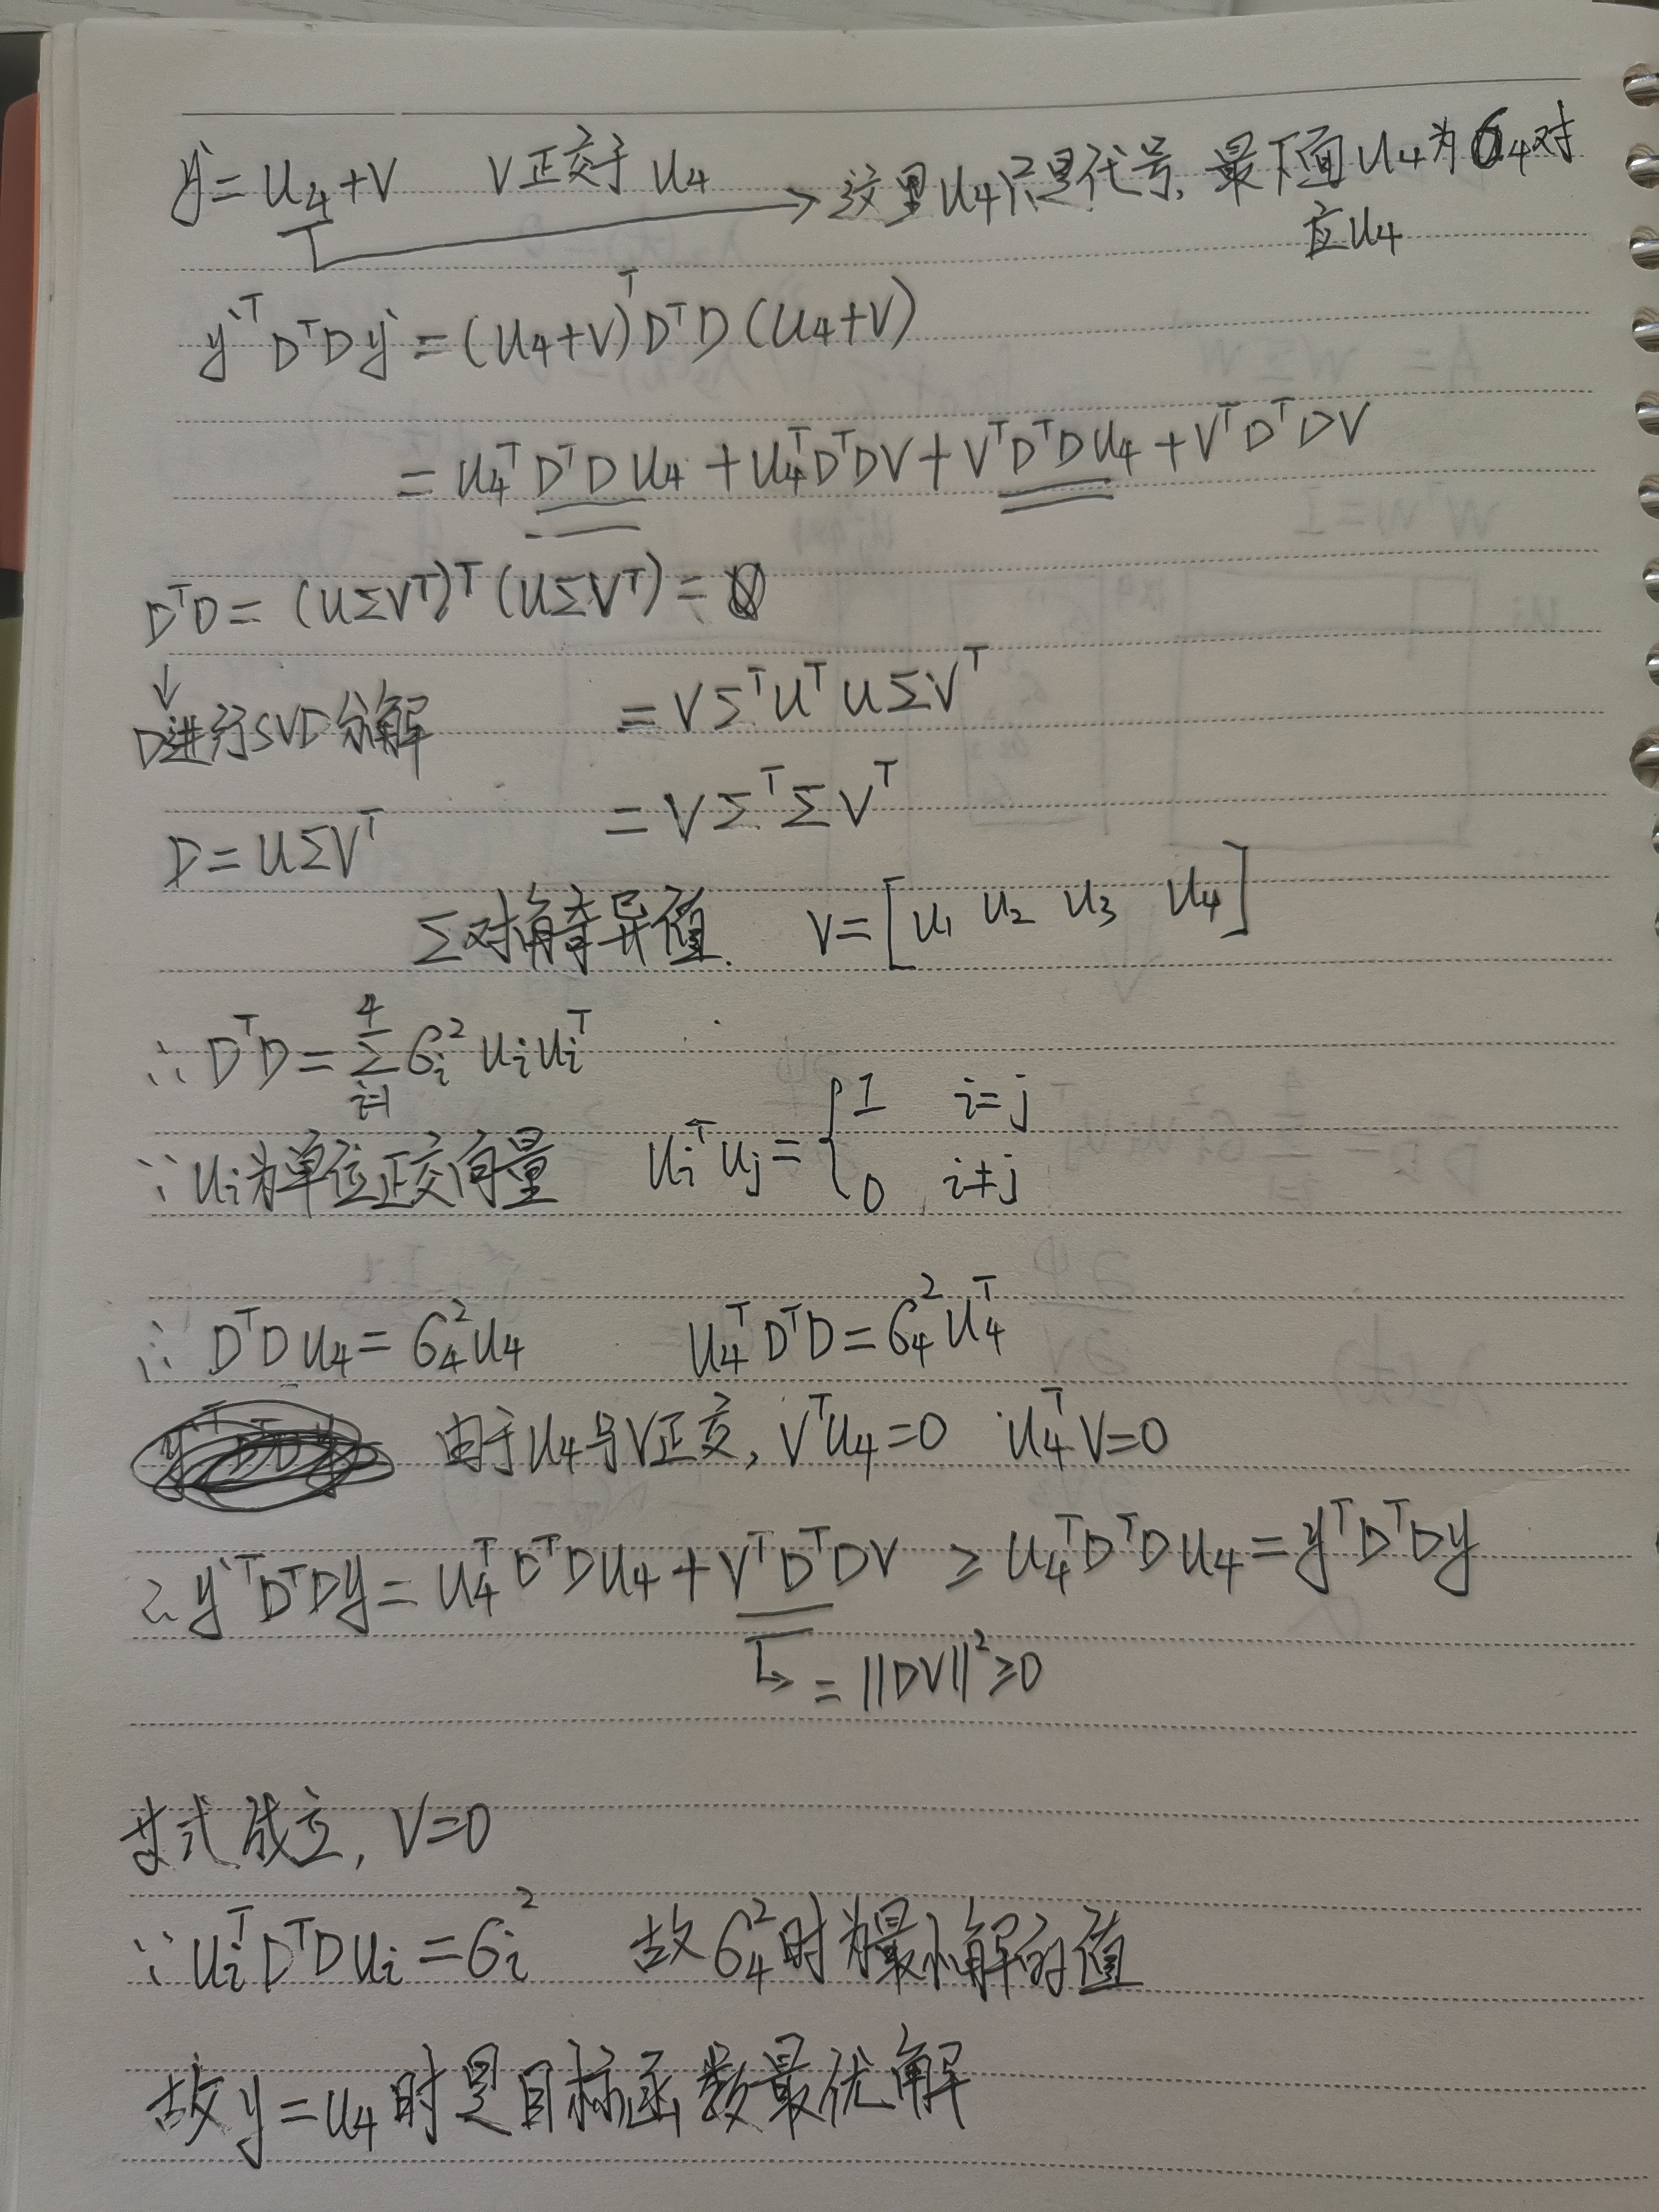 y' = u₄+v  v正交于 u₄ → 这里u₄只是代号,最下面u₄为σ₄对
应u₄
y'ᵀDᵀDy' = (u₄+v)ᵀDᵀD(u₄+v)
= u₄ᵀDᵀDu₄ + u₄ᵀDᵀDv + vᵀDᵀDu₄ + vᵀDᵀDv
DᵀD = (UΣVᵀ)ᵀ(UΣVᵀ) =
↓
D进行SVD分解  = VΣᵀUᵀUΣVᵀ
= VΣᵀΣVᵀ
D = UΣVᵀ
Σ对角奇异值.  V = [u₁ u₂ u₃ u₄]
∴ DᵀD = Σᵢ₌₁⁴ σᵢ²uᵢuᵢᵀ
∵ uᵢ为单位正交向量  uᵢᵀuⱼ = { 1  i=j
0  i≠j
∴ DᵀDu₄ = σ₄²u₄  u₄ᵀDᵀD = σ₄²u₄ᵀ
由于u₄与v正交, vᵀu₄=0  u₄ᵀv=0
∴ y'ᵀDᵀDy' = u₄ᵀDᵀDu₄ + vᵀDᵀDv ≥ u₄ᵀDᵀDu₄ = yᵀDᵀDy
↳ = ||Dv||² ≥ 0
若式成立, v=0
∵ uᵢᵀDᵀDuᵢ = σᵢ²  故σ₄²时为最小解的值
故y=u₄时是目标函数最优解